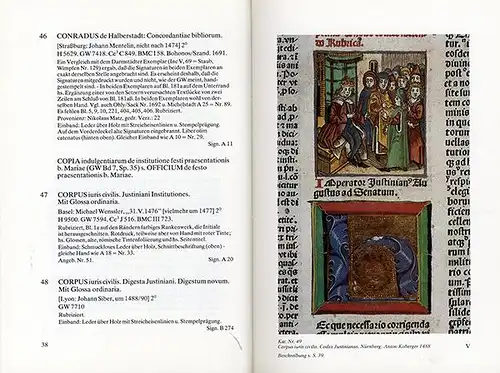 46 CONRADUS de Halberstadt: Concordantiae bibliorum.
[Straßburg: Johann Mentelin, nicht nach 1474] 2⁰
H 5629. GW 7418. Ce³ C849. BMC 158. Bohonov/Szand. 1691.
Ein Vergleich mit dem Darmstädter Exemplar (Inc V, 69 = Staub,
Wimpfen Nr. 129) ergab, daß die Signaturen in beiden Exemplaren an
exakt derselben Stelle angebracht sind. Es erscheint deshalb, daß die
Signaturen mitgedruckt wurden und nicht, wie der GW meint, hand-
gestempelt sind. – In beiden Exemplaren auf Bl. 181a auf dem Unterrand
hs. Ergänzung einer von den Setzern verursachten Textlücke von zwei
Zeilen am Schluß von Bl. 181aII. In beiden Exemplaren wohl von der-
selben Hand. Vgl. auch Ohly/Sack Nr. 1692 u. Michelstadt A 25 = Nr. 89.
Es fehlen Bl. 5, 9, 10, 221, 404, 405, 406. Rubriziert.
Provenienz: Nikolaus Matz, gedr. Verz.: 22
Einband: Leder über Holz mit Streicheisenlinien u. Stempelprägung.
Auf dem Vorderdeckel alte Signaturen eingebrannt. Liber olim
catenatus (hinten oben). Gleicher Einband wie A 10 = Nr. 29.
Sign. A 11
COPIA indulgentiarum de institutione festi praesentationis
b. Mariae (GW Bd 7, Sp. 35) s. OFFICIUM de festo
praesentationis b. Mariae.
47 CORPUS iuris civilis. Justiniani Institutiones.
Mit Glossa ordinaria.
Basel: Michael Wenssler, „31. V. 1476“ [vielmehr um 1477] 2⁰
H 9500. GW 7594. Ce³ J 516. BMC III 723.
Rubriziert, Bl. 1a auf den Rändern farbiges Rankenwerk, die Initiale
ist herausgeschnitten. Rotdruck, teilweise aber von Hand mit roter Tinte;
hs. Glossen, alte, römische Tintenfoliierung und hs. Seitentitel.
Einband: Schmuckloses Leder über Holz, Schnittbeschriftung (oben) -
gleiche Hand wie A 18 = Nr. 33.
Angeb. Nr. 51. Sign. A 20
48 CORPUS iuris civilis. Digesta Justiniani. Digestum novum.
Mit Glossa ordinaria.
[Lyon: Johann Siber, um 1488/90] 2⁰
GW 7710
Rubriziert.
Einband: Leder über Holz mit Streicheisenlinien u. Stempelprägung.
Sign. B 274
38
Rubrica.
Imperator Justinian⁹
Augustus ad Senatum.
Ec que necessario corrigenda
Kat. Nr. 49
Corpus iuris civilis. Codex Justinianus. Nürnberg, Anton Koberger 1488
V
Beschreibung s. S. 39.